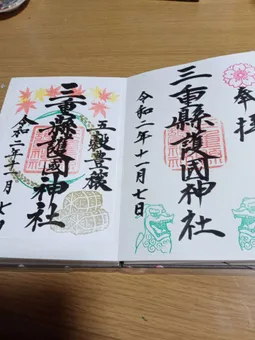 奉拝
三重縣護國神社
令和二年十一月七日
五穀豊穣
三重縣護國神社
令和二年十一月七日